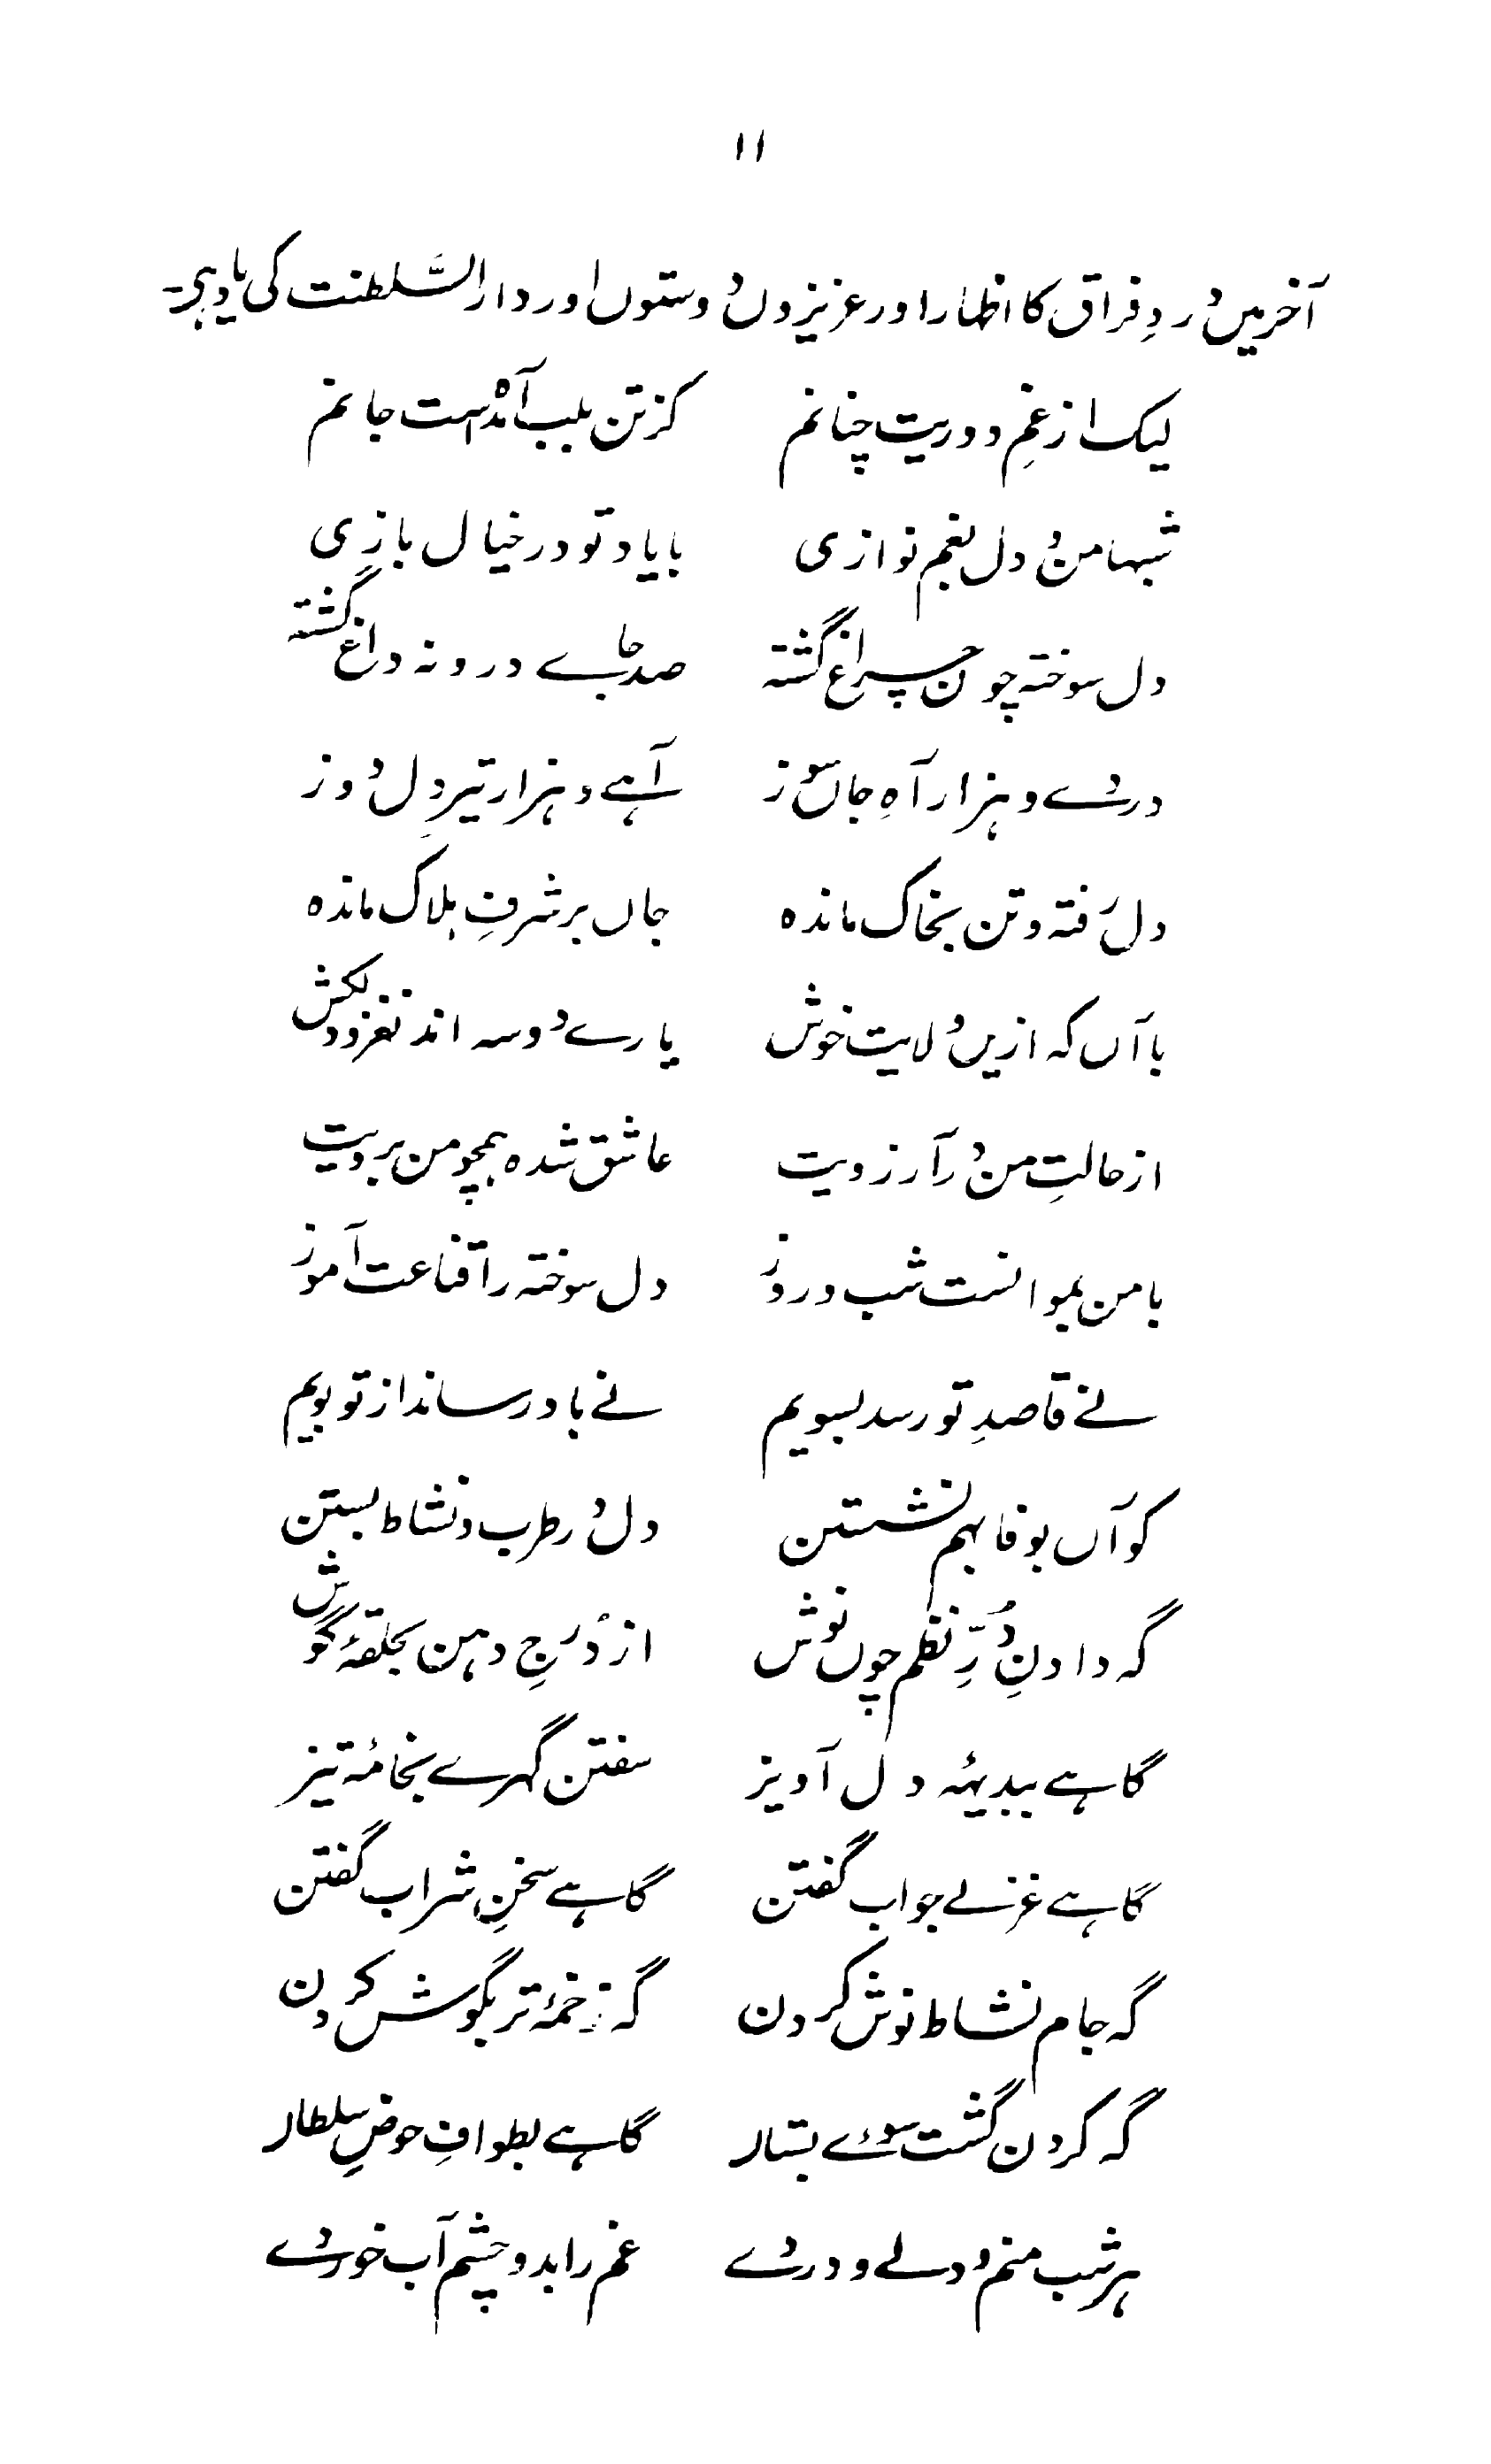 ۱۱
آخر میں دردِ فراق کا اظہار اور عزیزوں دوستوں اور دار السَّلطنت کی یاد ہی۔
لیک از غمِ دوریت چنانم کز تن بلب آمدہ است جانم
شبہا من و دل بغم نوازی با یاد تو در خیال بازی
دل سوختہ چون چراغ گشتہ صد جاے درونہ داغ گشتہ
دردے و ہزار آہِ جاں سوز آہے و ہزار تیرِ دل دوز
دل رفتہ و تن بخاک ماندہ جاں بر شرفِ ہلاک ماندہ
با آں کہ ازیں ولایت خوش یارے دوسہ اند نغز و دلکش
از حالتِ من در آرزویت عاشق شدہ ہمچو من برویت
با من بموانست شب و روز دل سوختہ را قناعت آموز
نے قاصدِ تو رسد بسویم نے باد رساند از تو بویم
کو آں بوفا بہم نشستن دل در طرب و نشاط بستن
گہ دادنِ دُرِّ نظم چوں نوش از دُرجِ دہن بحلقۂ گوش
گاہے ببدیہۂ دل آویز سفتن گہرے بخامۂ تیز
گاہے غزلے جواب گفتن گاہے سخنِ شراب گفتن
گہ جام نشاط نوش کردن گہ زخمۂ تر بگوش کردن
گہ کردن گشت سوے بستاں گاہے بطوافِ حوضِ سلطاں
ہر شب منم و دلے و دردے غم را بدو چشم آب خوردے